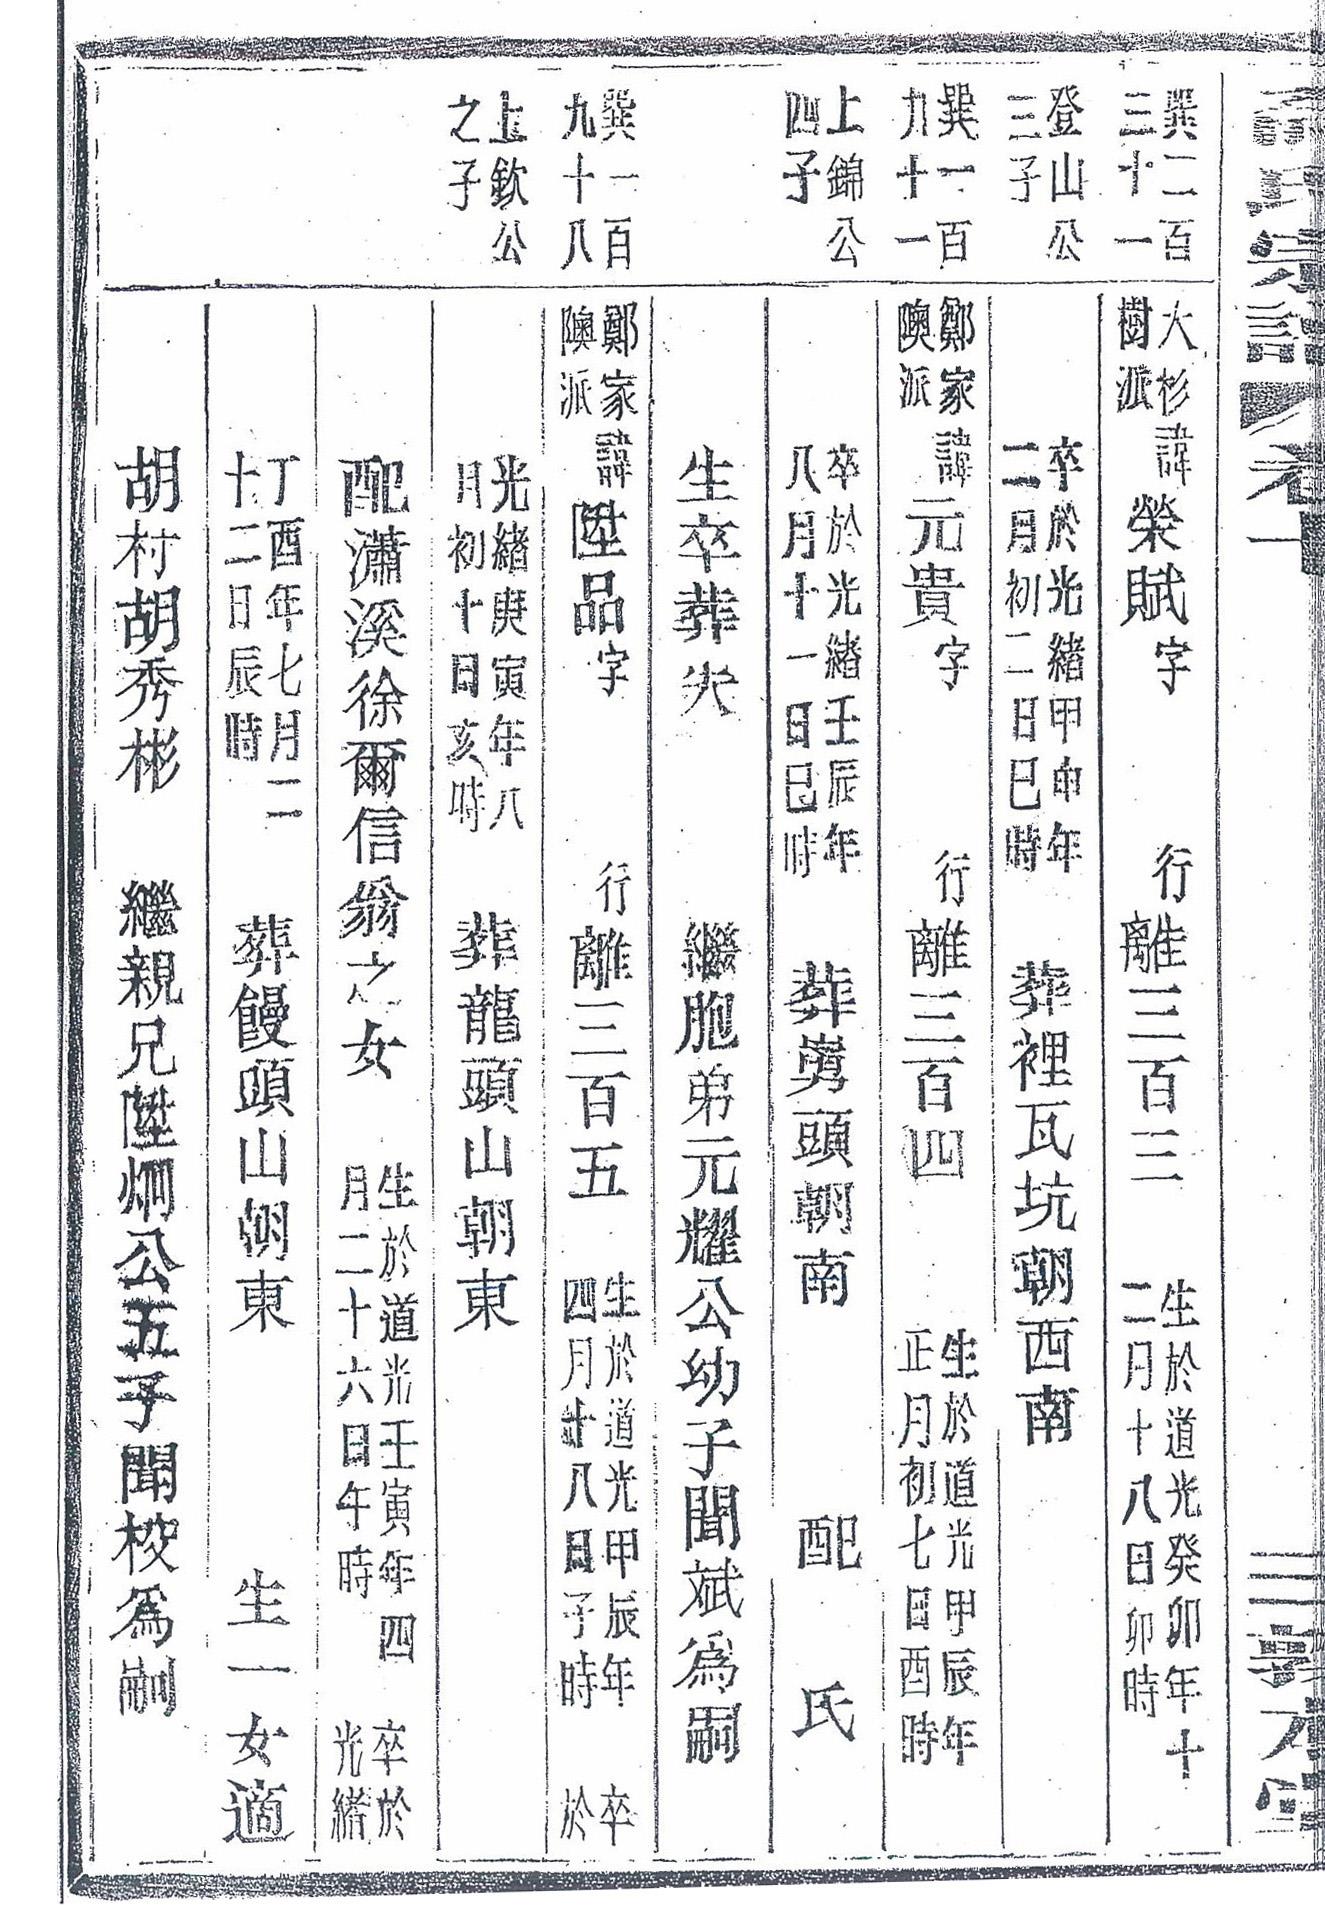 氏宗譜 卷十
敦本堂
巽二百三十一
大杉樹派 諱榮賦字 行離三百三 生於道光癸卯年十二月十八日卯時
登山公三子
卒於光緒甲申年二月初二日巳時 葬裡瓦坑朝西南
巽一百九十一
鄭家隩派 諱元貴字 行離三百四 生於道光甲辰年正月初七日酉時
上錦公四子
卒於光緒壬辰年八月十一日巳時 葬嶴頭朝南 配 氏
生卒葬失 繼胞弟元耀公幼子聞斌為嗣
巽一百九十八
鄭家隩派 諱陞品字 行離三百五 生於道光甲辰年四月廿八日子時 卒於
上欽公之子
光緒庚寅年八月初十日亥時 葬龍頭山朝東
配瀟溪徐爾信翁之女 生於道光壬寅年四月二十六日午時 卒於光緒
丁酉年七月二十二日辰時 葬饅頭山朝東 生一女適
胡村胡秀彬 繼親兄陞炯公五子聞校為嗣